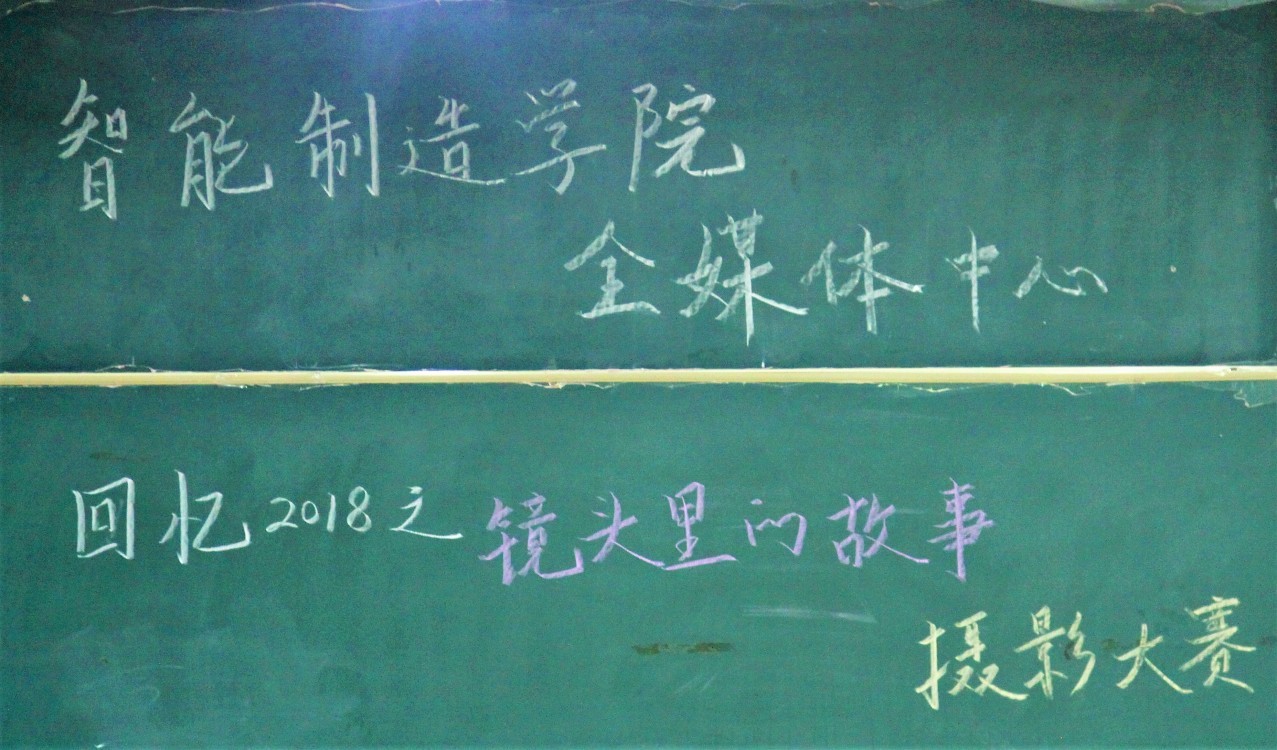 智能制造学院
全媒体中心
回忆2018之镜头里的故事
摄影大赛